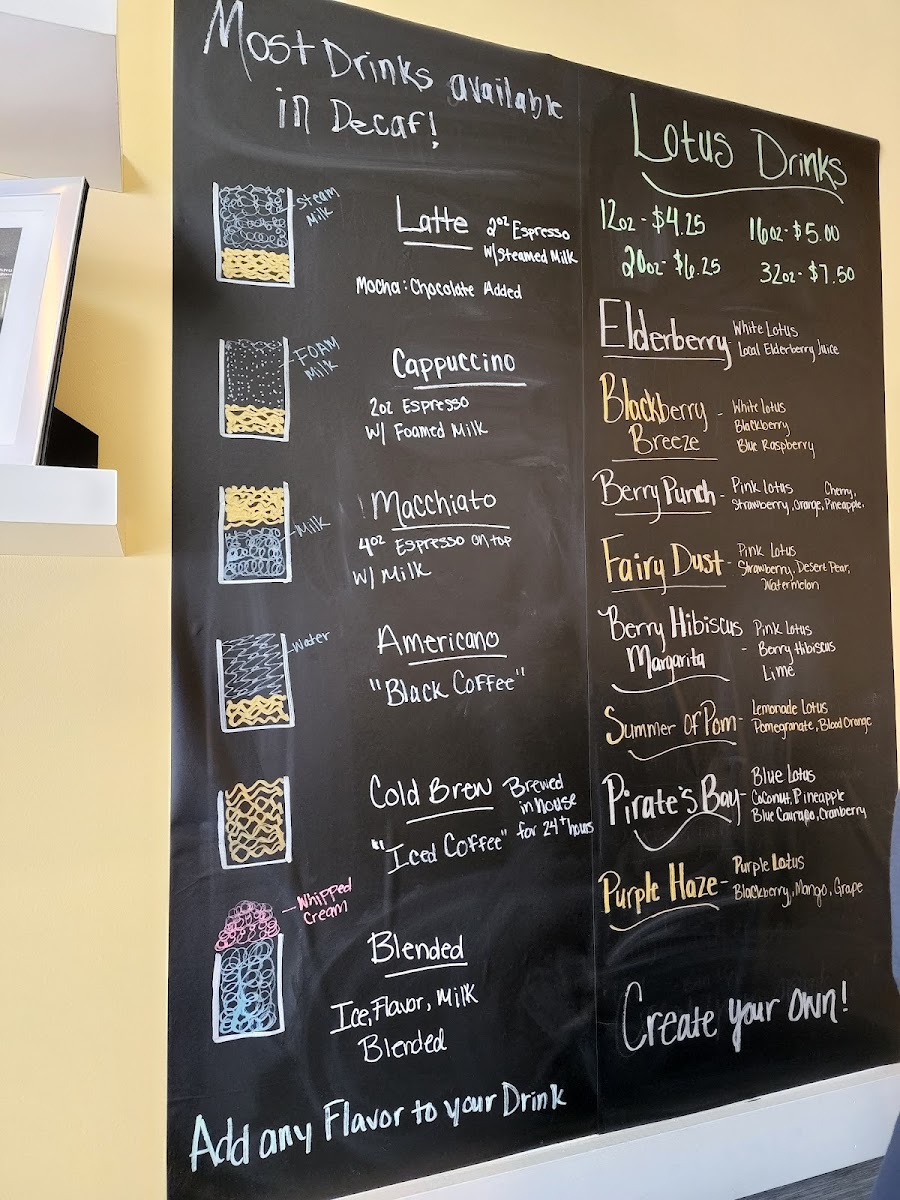 Most Drinks available
in Decaf!
Steam
Milk
Latte 2oz Espresso
w/Steamed Milk
Mocha: Chocolate Added
FOAM
Milk
Cappuccino
2oz Espresso
w/ Foamed Milk
Milk
Macchiato
4oz Espresso on top
w/ Milk
Water
Americano
"Black Coffee"
Cold Brew Brewed
in house
for 24+ hours
"Iced Coffee"
Whipped
Cream
Blended
Ice, Flavor, Milk
Blended
Add any Flavor to your Drink
Lotus Drinks
12oz - $4.25 16oz - $5.00
20oz - $6.25 32oz - $7.50
Elderberry - White Lotus
Local Elderberry Juice
Blackberry
Breeze - White Lotus
Blackberry
Blue Raspberry
Berry Punch - Pink Lotus Cherry,
Strawberry, Orange, Pineapple,
Fairy Dust - Pink Lotus
Strawberry, Desert Pear,
Watermelon
Berry Hibiscus
Margarita - Pink Lotus
Berry Hibiscus
Lime
Summer of Pom - Lemonade Lotus
Pomegranate, Blood Orange
Pirate's Bay - Blue Lotus
Coconut, Pineapple
Blue Caurapo, Cranberry
Purple Haze - Purple Lotus
Blackberry, Mango, Grape
Create your own!